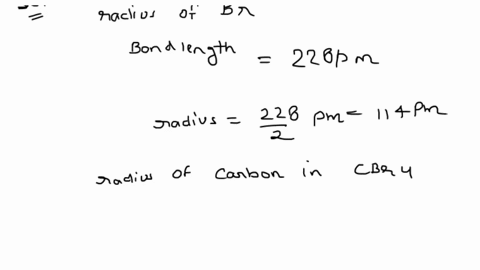 radius of Br
Bond length = 228pm
radius = 228/2 pm = 114 pm
radius of Carbon in CBr4